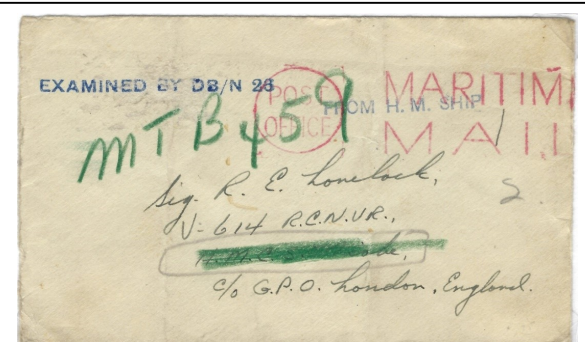 EXAMINED BY DB/N 26
POST OFFICE
MARITIM
MAIL
FROM H. M. SHIP
MTB 459
Sig. R. E. Lovelock,
2.
V-614 R.C.N.V.R.,
c/o G.P.O. London, England.